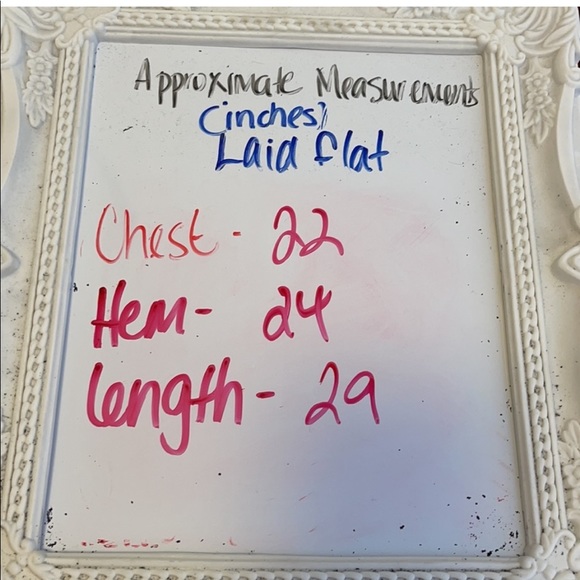 Approximate Measurements
(inches)
Laid flat
Chest - 22
Hem - 24
length - 29